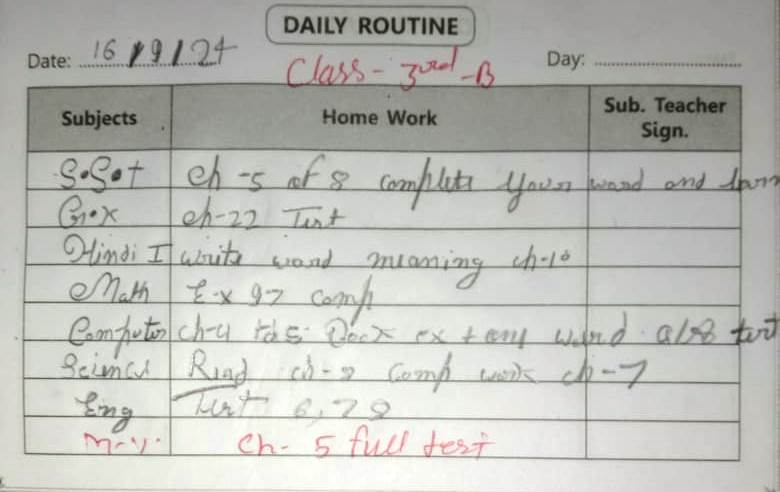 DAILY ROUTINE
Date: 16/9/24 Day:
Class - 3rd - B
Subjects Home Work Sub. Teacher Sign.
S.S.t ch-5 of 8 complete your word and
G.K ch-22 Test
Hindi I write word meaning ch-10
Math Ex 9-7 comp
Computer ch-4 to 5 Book ex + word also test
Science Read ch-8 comp work ch-7
Eng Test 6,7 8
M.V. Ch- 5 full test